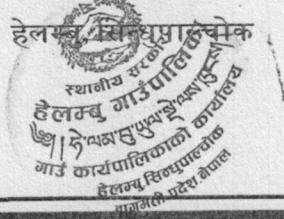 हेलम्बु, सिन्धुपाल्चोक
स्थानीय सरकार
हेलम्बु गाउँपालिका
गाउँ कार्यपालिकाको कार्यालय
हेलम्बु सिन्धुपाल्चोक
बागमती प्रदेश, नेपाल